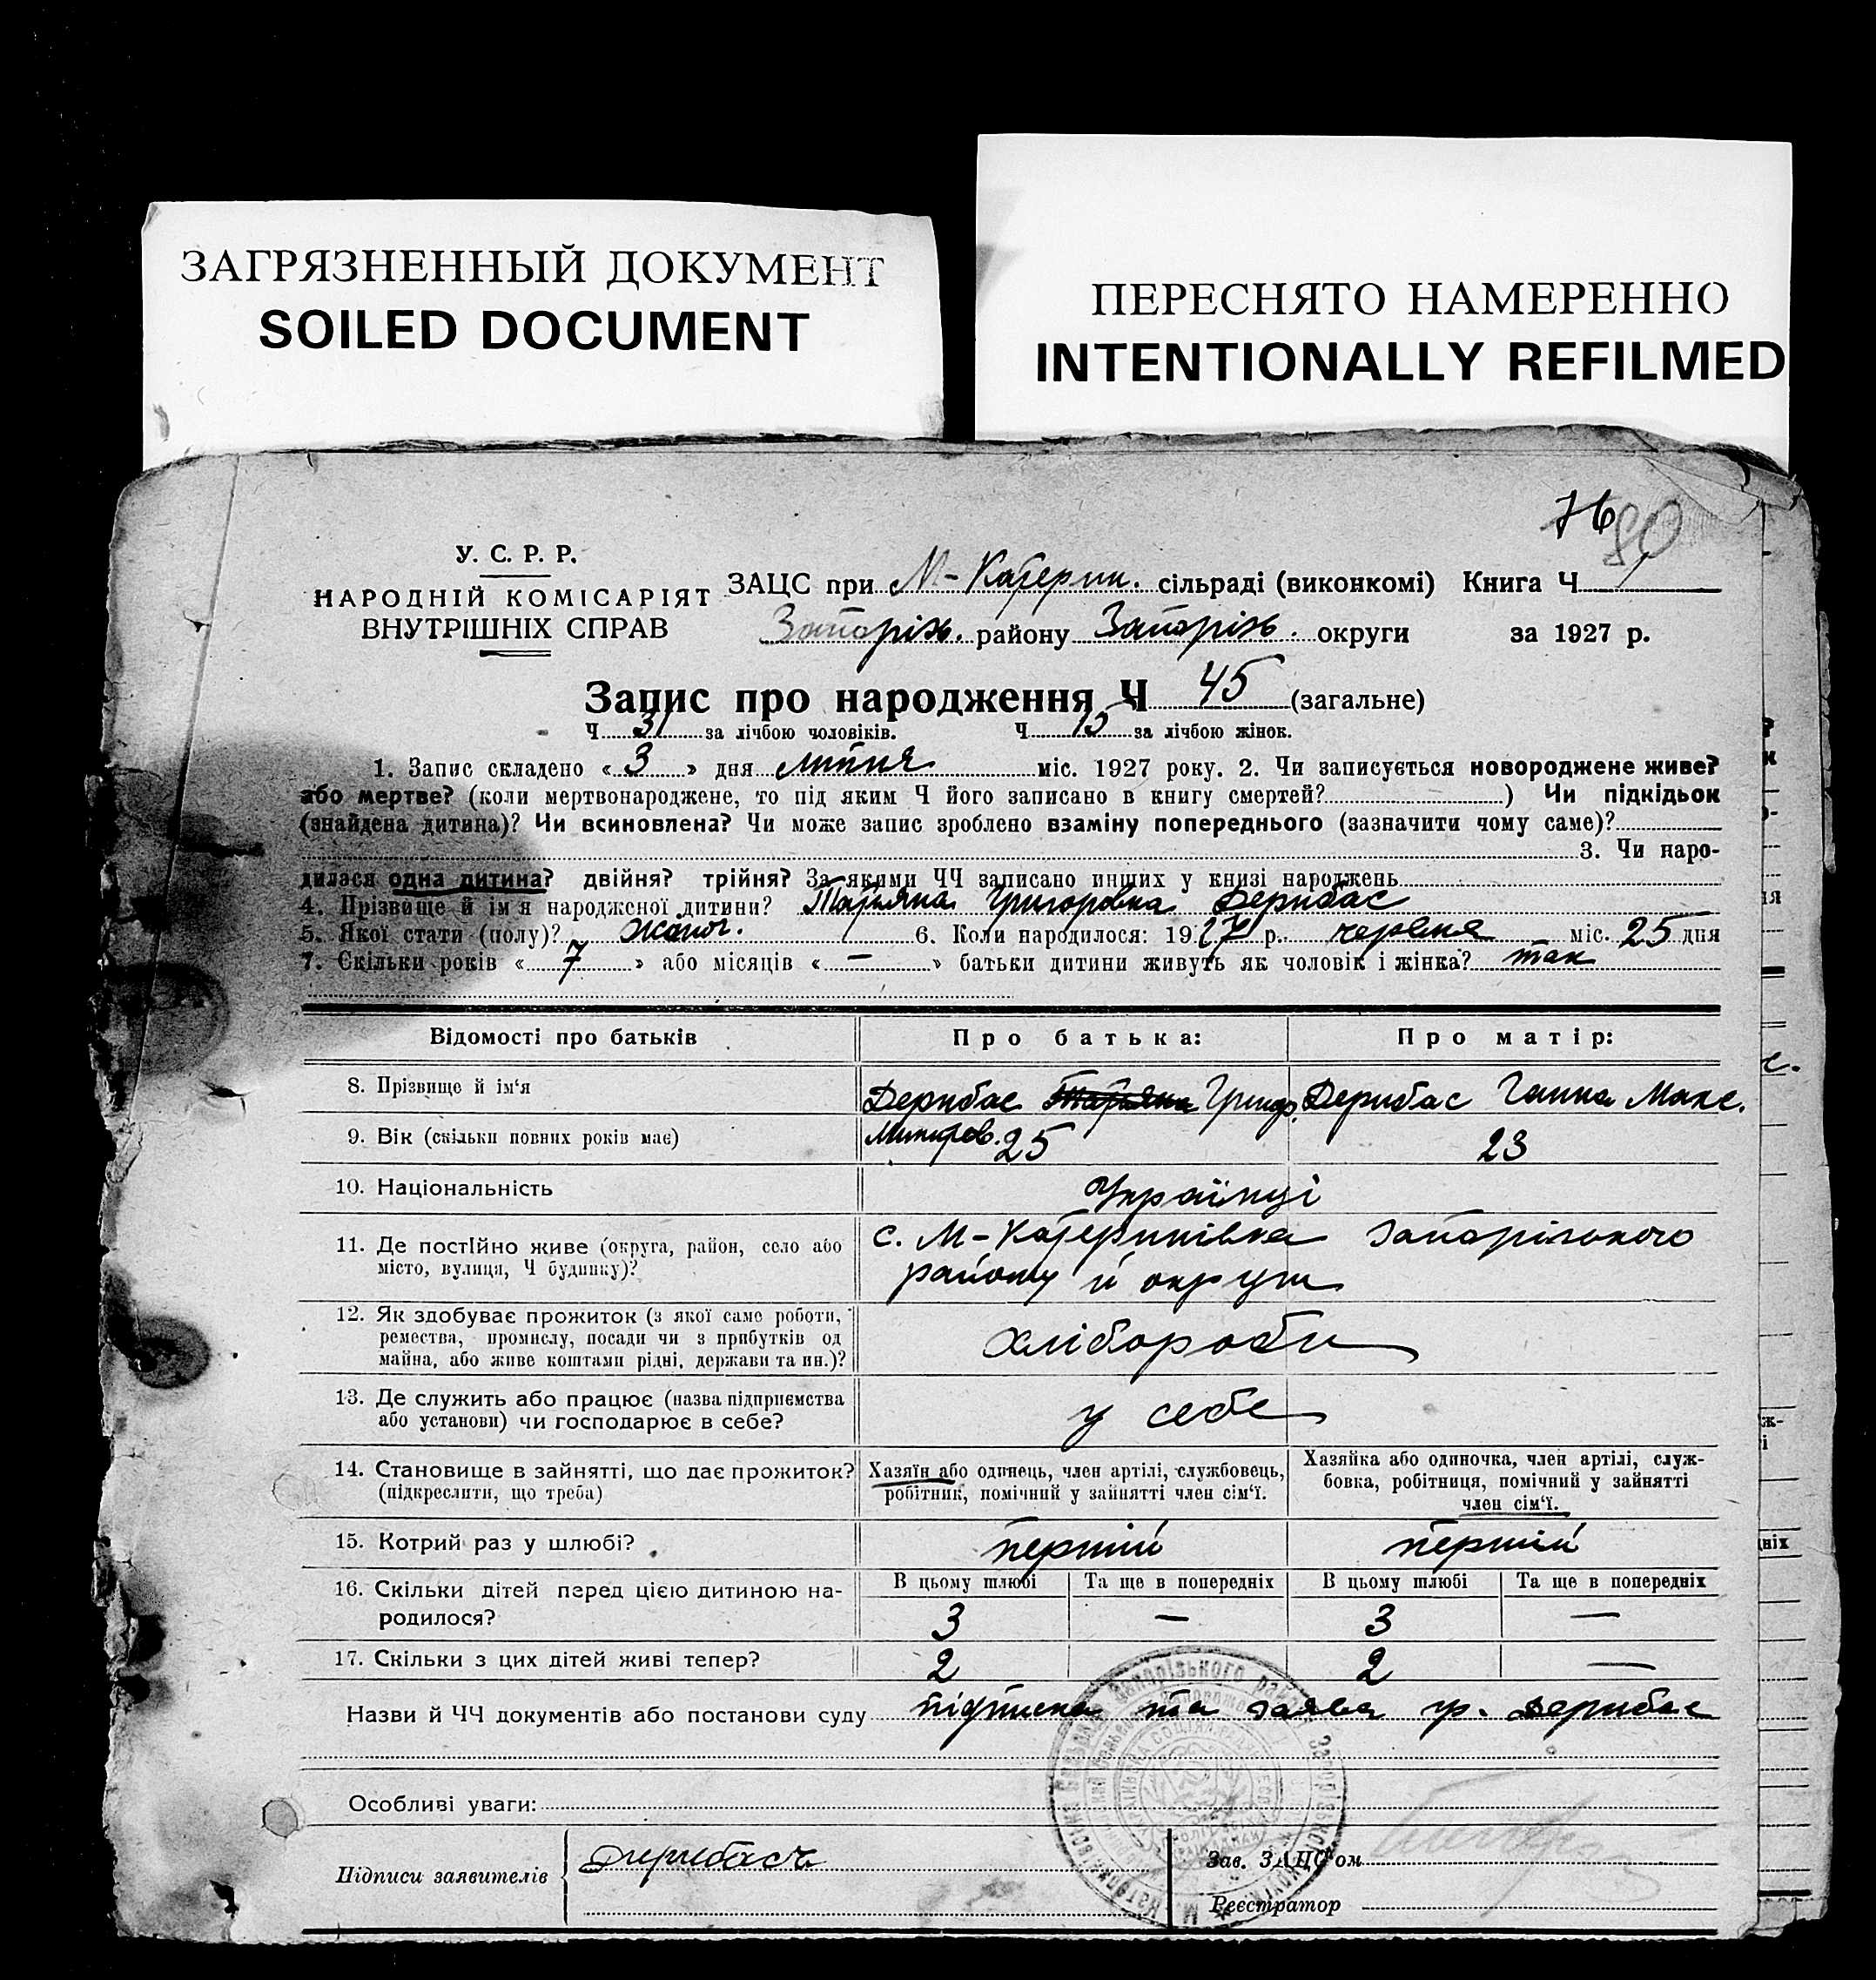 ЗАГРЯЗНЕННЫЙ ДОКУМЕНТ
SOILED DOCUMENT
ПЕРЕСНЯТО НАМЕРЕННО
INTENTIONALLY REFILMED
76 80
У. С. Р. Р.
НАРОДНІЙ КОМІСАРІЯТ
ВНУТРІШНІХ СПРАВ
ЗАЦС при М-Катерин. сільраді (виконкомі) Книга Ч
Запоріз. району Запоріз. округи за 1927 р.
Запис про народження Ч 45 (загальне)
Ч 31 за лічбою чоловіків. Ч за лічбою жінок.
1. Запис складено « 3 » дня липня міс. 1927 року. 2. Чи записується новороджене живе?
або мертве? (коли мертвонароджене, то під яким Ч його записано в книгу смертей? ) Чи підкідьок
(знайдена дитина)? Чи всиновлена? Чи може запис зроблено взаміну попереднього (зазначити чому саме)?
3. Чи наро-
дилася одна дитина? двійня? трійня? За якими ЧЧ записано инших у книзі народжень
4. Прізвище й ім'я народженої дитини? Татьяна Григоровна Дерибас
5. Якої стати (полу)? жіноч. 6. Коли народилося: 1927 р. червня міс. 25 дня
7. Скільки років « 7 » або місяців « — » батьки дитини живуть як чоловік і жінка? так
Відомості про батьків Про батька: Про матір:
8. Прізвище й ім'я Дерибас Татьяна Григор. Дерибас Ганна Макс.
9. Вік (скільки повних років має) 25 23
10. Національність Українці
11. Де постійно живе (округа, район, село або с. М-Катеринівка Запорізького
місто, вулиця, Ч будинку)? району й округи
12. Як здобуває прожиток (з якої саме роботи,
ремества, промислу, посади чи з прибутків од хлібороби
майна, або живе коштами рідні, держави та ин.)?
13. Де служить або працює (назва підприємства
або установи) чи господарює в себе? у себе
14. Становище в зайнятті, що дає прожиток? Хазяїн або одинець, член артілі, службовець, Хазяйка або одиночка, член артілі, служ-
(підкреслити, що треба) робітник, помічний у зайнятті член сім'ї. бовка, робітниця, помічний у зайнятті
член сім'ї.
15. Котрий раз у шлюбі? перший перший
16. Скільки дітей перед цією дитиною на- В цьому шлюбі Та ще в попередніх В цьому шлюбі Та ще в попередніх
родилося? 3 — 3 —
17. Скільки з цих дітей живі тепер? 2 2 —
Назви й ЧЧ документів або постанови суду підписка та заява гр. Дерибас
Особливі уваги:
Підписи заявителів Зав. ЗАЦС'ом
Реєстратор